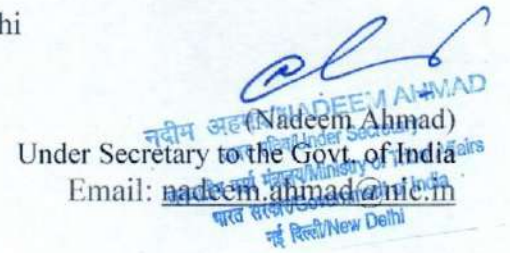 hi
(Nadeem Ahmad)
Under Secretary to the Govt. of India
Email: nadeem.ahmad@nic.in
नदीम अहमद/NADEEM AHMAD
सचिव/Under Secretary
मंत्रालय/Ministry of Affairs
भारत सरकार/Government of India
नई दिल्ली/New Delhi